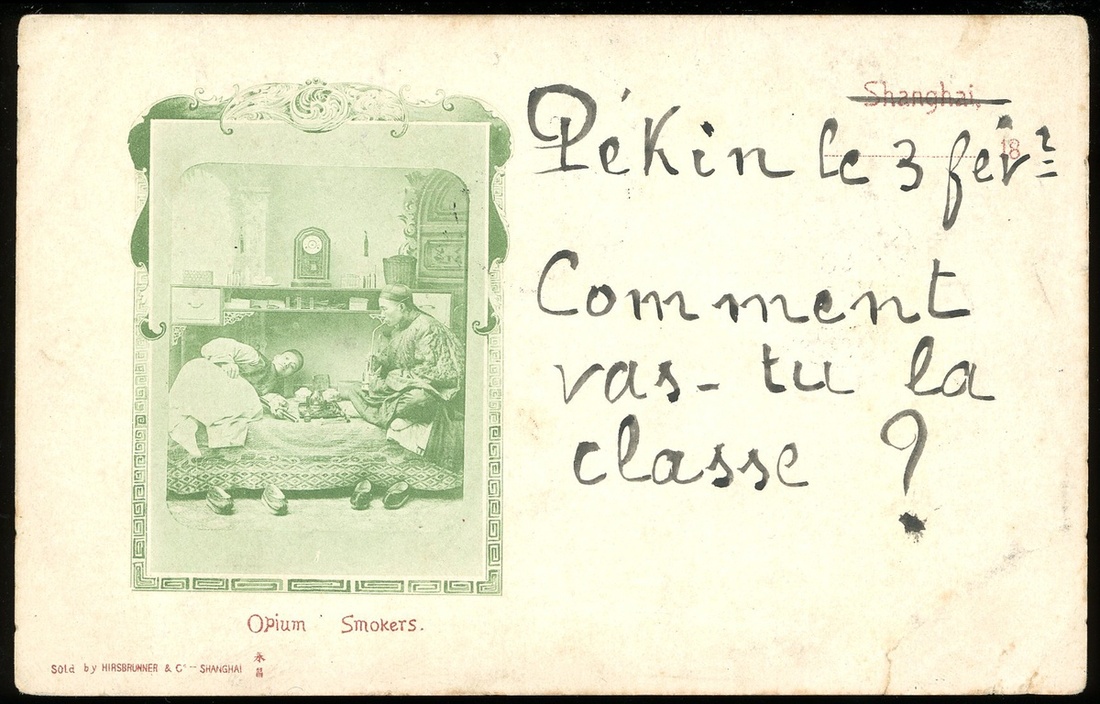 Shanghai,
18
Pékin le 3 févr
Comment
vas-tu la
classe ?
Opium Smokers.
Sold by HIRSBRUNNER & Co SHANGHAI
永昌